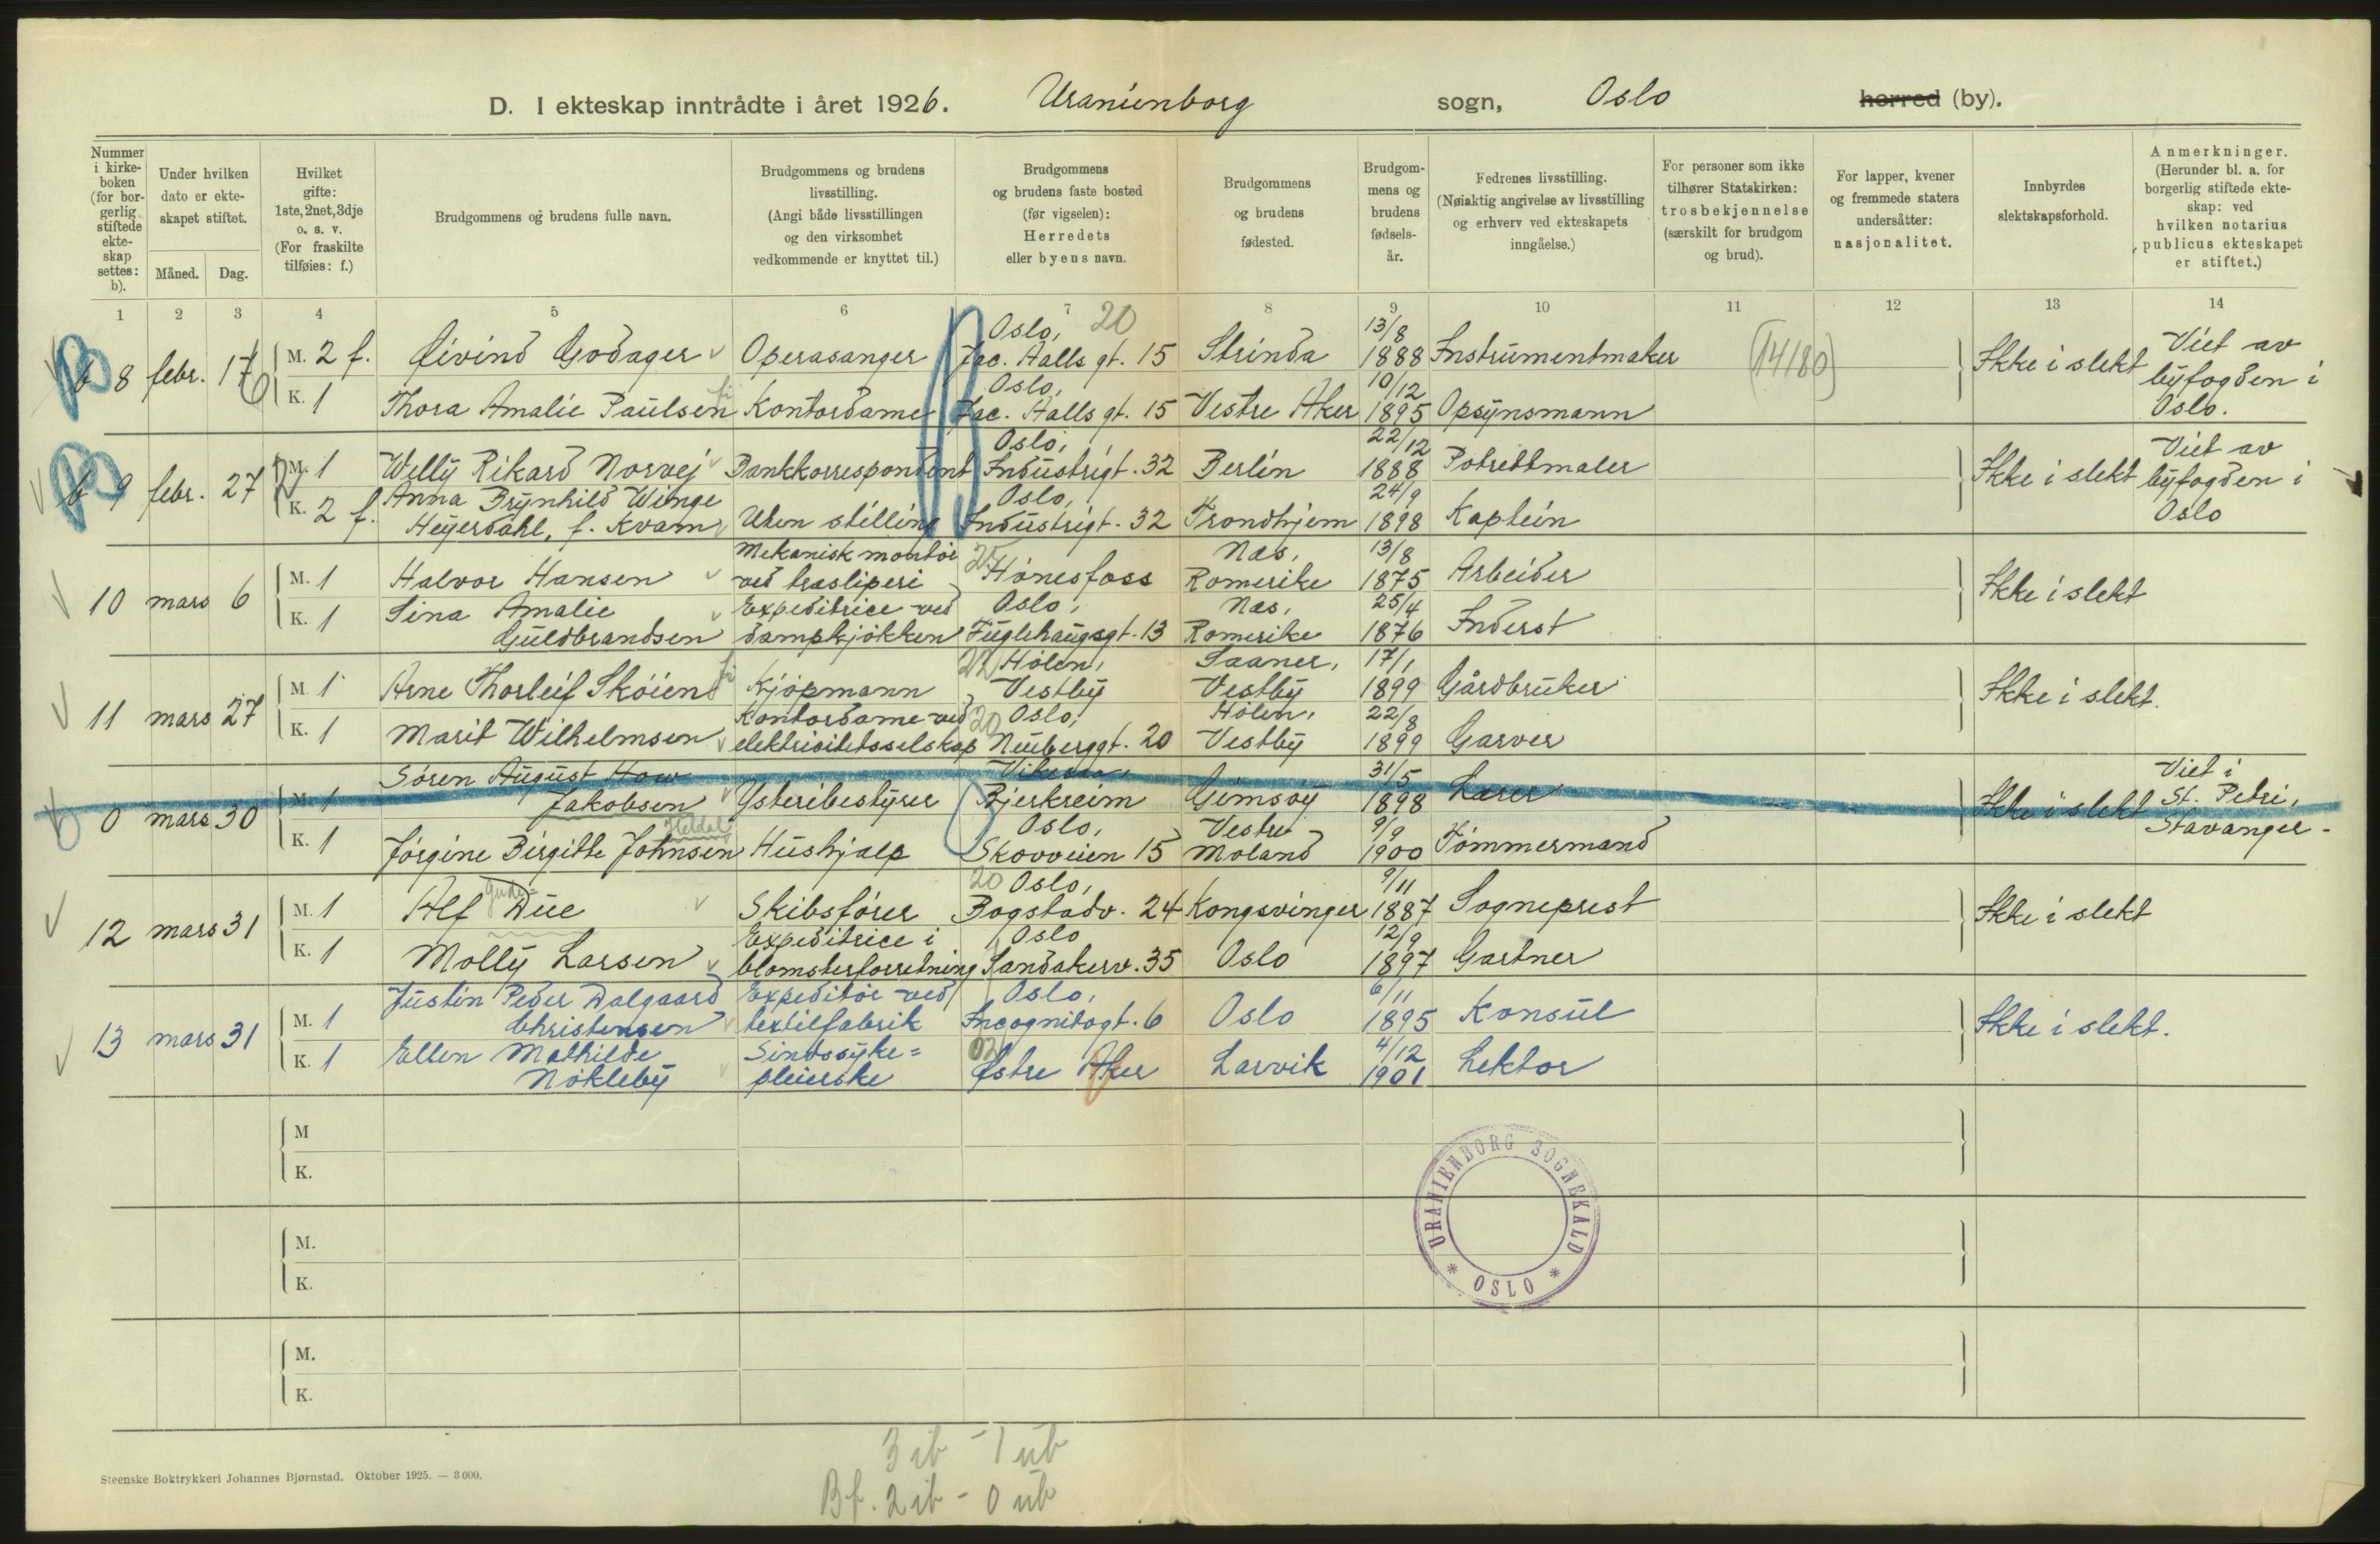 D. I ekteskap inntrådte i året 1926. Uranienborg sogn, Oslo herred (by).
Nummer i kirkeboken (for borgerlig stiftede ekteskap settes: b).
Under hvilken dato er ekteskapet stiftet.
Måned. Dag.
Hvilket gifte: 1ste, 2net, 3dje o. s. v. (For fraskilte tilføies: f.)
Brudgommens og brudens fulle navn.
Brudgommens og brudens livsstilling. (Angi både livsstillingen og den virksomhet vedkommende er knyttet til.)
Brudgommens og brudens faste bosted (før vigselen): Herredets eller byens navn.
Brudgommens og brudens fødested.
Brudgommens og brudens fødselsår.
Fedrenes livsstilling. (Nøiaktig angivelse av livsstilling og erhverv ved ekteskapets inngåelse.)
For personer som ikke tilhører Statskirken: trosbekjennelse (særskilt for brudgom og brud).
For lapper, kvener og fremmede staters undersåtter: nasjonalitet.
Innbyrdes slektskapsforhold.
Anmerkninger. (Herunder bl. a. for borgerlig stiftede ekteskap: ved hvilken notarius publicus ekteskapet er stiftet.)
1 2 3 4 5 6 7 8 9 10 11 12 13 14
b 8 febr. 17 M. 2 f. Øivind Godager Operasanger Oslo, 20 Jac. Aalls gt. 15 Strinda 13/8 1888 Instrumentmaker (14180) Ikke i slekt Viet av byfogden i Oslo.
K. 1 Thora Amalie Paulsen Kontordame Oslo, Jac. Aalls gt. 15 Vestre Aker 10/12 1895 Opsynsmann
b 9 febr. 27 M. 1 Willy Rikard Norvej Bankkorrespondent Oslo, Industrigt. 32 Berlin 22/12 1888 Potrettmaler Ikke i slekt Viet av byfogden i Oslo
K. 2 f. Anna Brynhild Winge Heyerdahl, f. Kvam Uten stilling Oslo, Industrigt. 32 Trondhjem 24/9 1898 Kaptein
10 mars 6 M. 1 Halvor Hansen Mekanisk montør ved træsliperi Hønefoss Næs, Romerike 13/8 1875 Arbeider Ikke i slekt
K. 1 Lina Amalie Guldbrandsen Expeditrice ved dampkjøkken Oslo, Fuglehaugsgt. 13 Næs, Romerike 25/4 1876 Inderst
11 mars 27 M. 1 Arne Thorleif Skøien Kjøpmann 22 Hølen, Vestby Saaner, Vestby 17/1 1899 Gårdbruker Ikke i slekt.
K. 1 Marit Wilhelmsen Kontordame ved elektrisitetsselskap 20 Oslo, Neuberggt. 20 Hølen, Vestby 22/8 1899 Garver
0 mars 30 M. 1 Søren August How Jakobsen Ysteribestyrer Bjerkreim Gimsøy 31/5 1898 Lærer Ikke i slekt Viet i St. Petri, Stavanger.
K. 1 Jørgine Birgitte Johnsen Hushjælp Oslo, Skovveien 15 Vestre Moland 9/9 1900 Tømmermand
12 mars 31 M. 1 Alf Due Skibsfører 20 Oslo, Bogstadv. 24 Kongsvinger 9/11 1887 Sogneprest Ikke i slekt
K. 1 Molly Larsen Expeditrice i blomsterforretning Oslo Sandakerv. 35 Oslo 12/9 1897 Gartner
13 mars 31 M. 1 Justin Peder Dalgaard Christensen Expeditør ved textilfabrik Oslo, Incognitogt. 6 Oslo 6/11 1895 Konsul Ikke i slekt.
K. 1 Ellen Mathilde Nøkleby Sindssykepleierske Østre Aker Larvik 4/12 1901 Lektor
M
K.
M.
K.
M.
K.
URANIENBORG SOGNEKALD * OSLO *
Steenske Boktrykkeri Johannes Bjørnstad. Oktober 1925. — 3 000.
3 ib - 1 ub
Bf. 2 ib - 0 ub